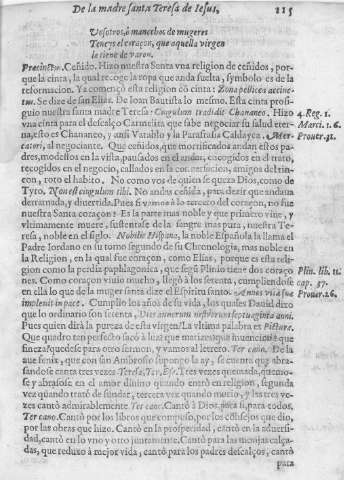 De la madre santa Teresa de Iesus, 115
Vosotros, ò mancebos de mugeres
Teneys el coraçon, que aquella virgen
le tiene de varon.
Precinctus. Ceñido. Hizo nuestra Santa vna religion de ceñidos, por-
que la cinta, la qual recoge la ropa que anda suelta, symbolo es de la
reformacion. Ya començò esta religion cõ cinta: Zona pellicea accinc-
tus. Se dize de san Elias. De Ioan Bautista lo mesmo. Esta cinta prosi-
guio nuestra santa madre Teresa: Cingulum tradidit Chananeo. Hizo 4. Reg. 1.
vna cinta para el descalço Carmelita que sabe negociar su salud eter- Marci. 1. 6.
na, esto es Chananeo, y assi Vatablo y la Parafrasis Caldayca: Mer- Prouer. 31.
catori, al negociante. Què ceñidos, què mortificados andan estos pa-
dres, modestos en la vista, pausados en el andar, encogidos en el trato,
recogidos en el negocio, callados en la conuersacion, amigos del rin-
con, roto el habito. No como vos de quien se queza Dios, como de
Tyro. Non est cingulum tibi. No andas ceñida, para dezir que anduua
derramada, y diuertida. Pues si vamos à lo tercero del coraçon, no fue
nuestra Santa coraçon? Es la parte mas noble y que primero viue, y
vltimamente muere, sustentase de la sangre mas pura, nuestra Te-
resa, noble en el siglo. Nobilis Hispana, la noble Española la llama el
Padre Iordano en su tomo segundo de su Chronologia, mas noble en
la Religion, en la qual fue coraçon, como Elias, porque es esta reli-
gion como la perdiz paphlagonica, que segũ Plinio tiene dos coraço Plin. lib. 11.
nes. Como coraçon viuio mucho, llegò à los setenta, cumpliendose cap. 37.
en ella lo que de la muger santa dize el Espiritu santo. Annos vitæ suæ Prouer. 26.
impleuit in pace. Cumplio los años de su vida, los quales Dauid dixo
que lo ordinario son setenta, Dies annorum nostrorum septuaginta anni.
Pues quien dirà la pureza de esta virgen? La vltima palabra es Picture.
Que quadro tan perfecto sacò à luz! que matizes! que inuencion! que
fineza! quedese para otro sermon, y vamos al tercero. Ter cano. De la
aue fenix, que con san Ambrosio supongo la ay, se cuenta que abra-
sandose canta tres vezes Teresa, Ter, Ese. Tres vezes quemada, quemo-
se y abrasose en el amor diuino quando entrò en religion, segunda
vez quando tratò de fundar, tercera vez quando murio, y las tres ve-
zes cantò admirablemente Ter cano. Cantò à Dios, para si, para todos.
Ter cano. Cantò por los libros que compuso, por los consejos que dio,
por las obras que hizo. Cantò en la prosperidad, cantò en la aduersi-
dad, cantò en lo vno y otro juntamente. Cantò para las monjas calça-
das, que reduxo à mejor vida, cantò para los padres descalços, cantò
para